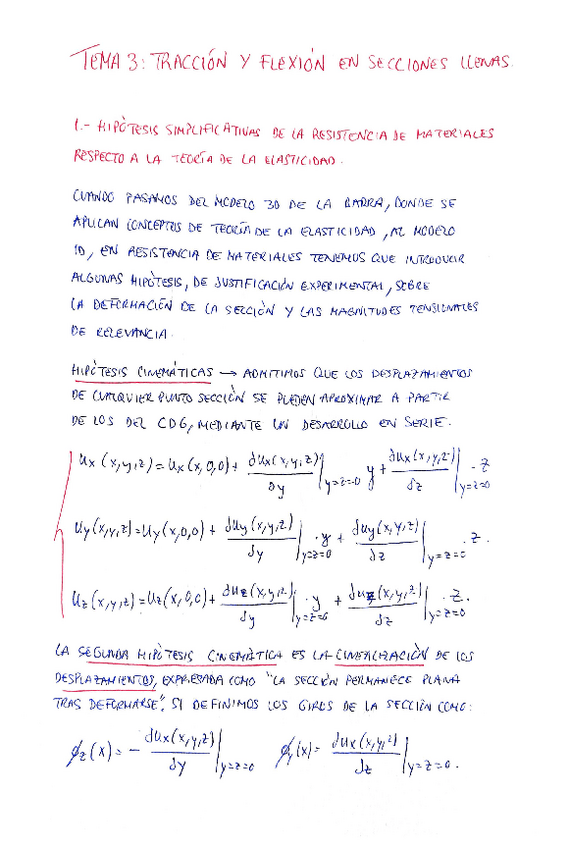 TEMA 3: TRACCIÓN Y FLEXIÓN EN SECCIONES LLENAS.
1.- HIPÓTESIS SIMPLIFICATIVAS DE LA RESISTENCIA DE MATERIALES
RESPECTO A LA TEORÍA DE LA ELASTICIDAD.
CUANDO PASAMOS DEL MODELO 3D DE LA BARRA, DONDE SE
APLICAN CONCEPTOS DE TEORÍA DE LA ELASTICIDAD, AL MODELO
1D, EN RESISTENCIA DE MATERIALES TENEMOS QUE INTRODUCIR
ALGUNAS HIPÓTESIS, DE JUSTIFICACIÓN EXPERIMENTAL, SOBRE
LA DEFORMACIÓN DE LA SECCIÓN Y LAS MAGNITUDES TENSIONALES
DE RELEVANCIA.
HIPÓTESIS CINEMÁTICAS → ADMITIMOS QUE LOS DESPLAZAMIENTOS
DE CUALQUIER PUNTO SECCIÓN SE PUEDEN APROXIMAR A PARTIR
DE LOS DEL CDG, MEDIANTE UN DESARROLLO EN SERIE.
ux(x,y,z) = ux(x,0,0) + ∂ux(x,y,z)/∂y |y=z=0 y + ∂ux(x,y,z)/∂z |y=z=0 · z
uy(x,y,z) = uy(x,0,0) + ∂uy(x,y,z)/∂y |y=z=0 · y + ∂uy(x,y,z)/∂z |y=z=0 · z.
uz(x,y,z) = uz(x,0,0) + ∂uz(x,y,z)/∂y |y=z=0 · y + ∂uz(x,y,z)/∂z |y=z=0 · z.
LA SEGUNDA HIPÓTESIS CINEMÁTICA ES LA LINEALIZACIÓN DE LOS
DESPLAZAMIENTOS, EXPRESADA COMO "LA SECCIÓN PERMANECE PLANA
TRAS DEFORMARSE", SI DEFINIMOS LOS GIROS DE LA SECCIÓN COMO:
ϕz(x) = - ∂ux(x,y,z)/∂y |y=z=0 ϕy(x) = ∂ux(x,y,z)/∂z |y=z=0.